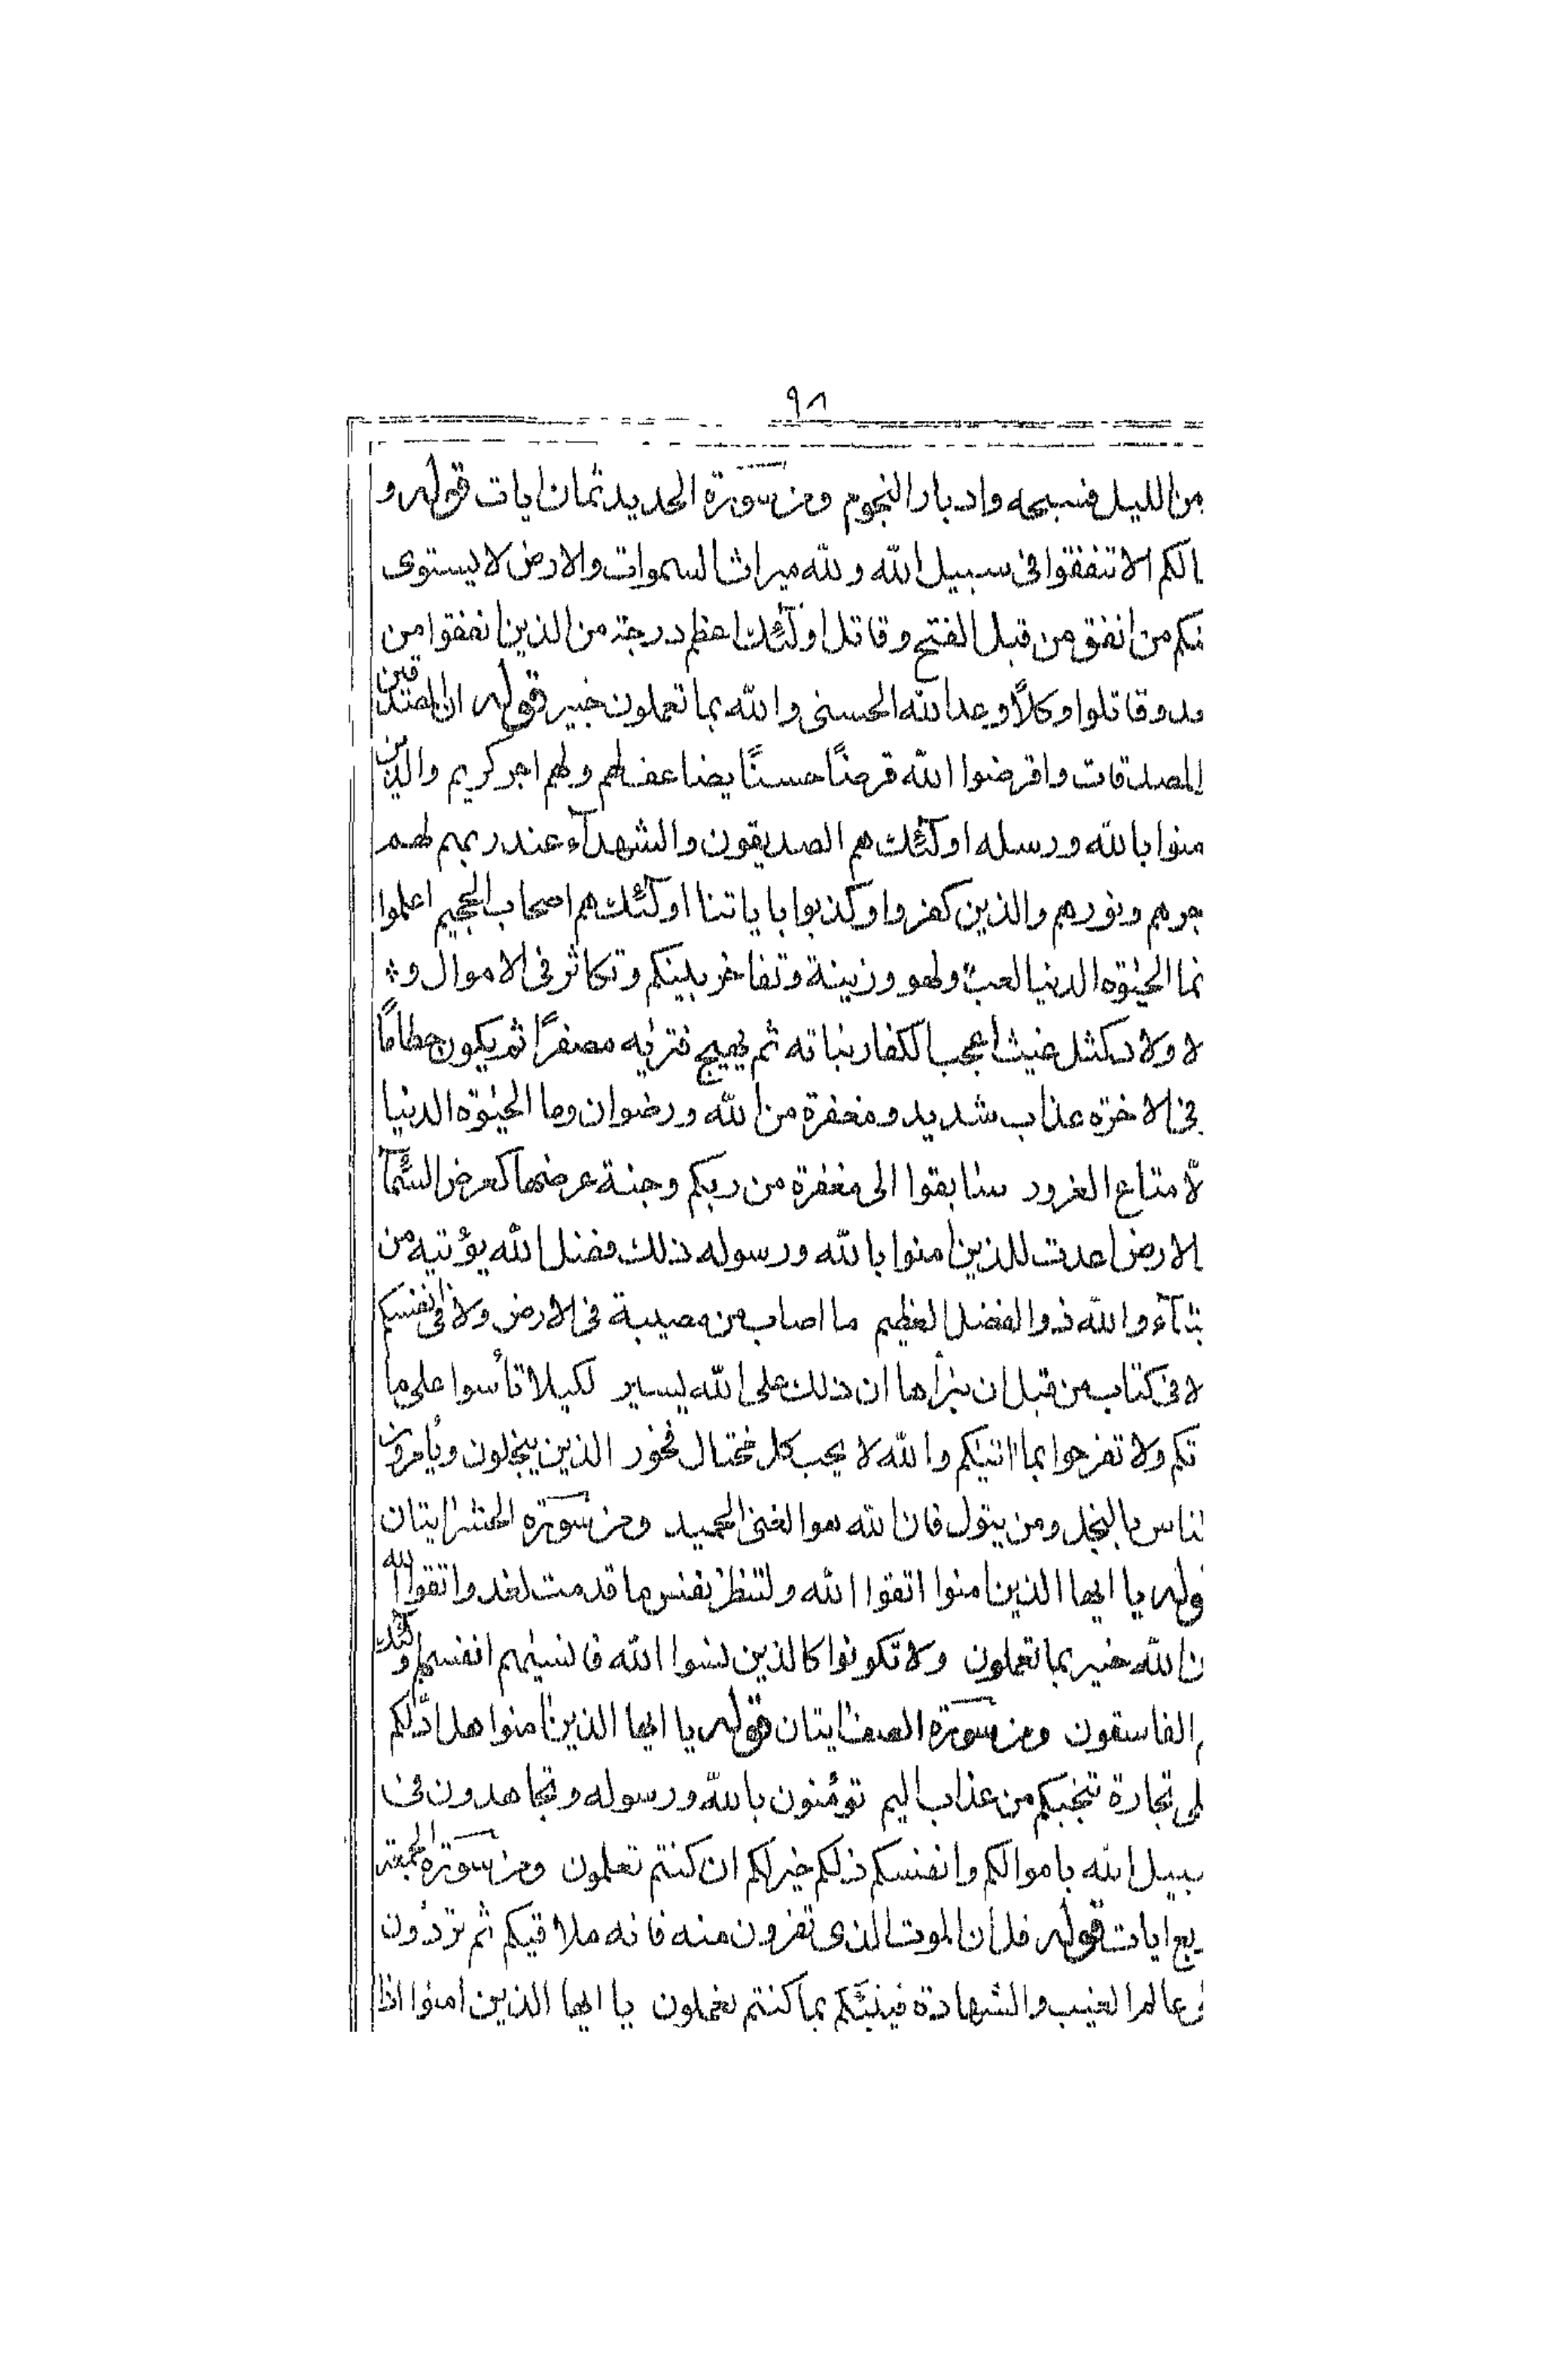 ٩٨
من الليل فسبحه وادبار النجوم ومن سورة الحديد ثمان ايات قوله و
الكم الا تنفقوا فى سبيل الله ولله ميراث السموات والارض لا يستوى
نكم من انفق من قبل الفتح وقاتل اولٓئك اعظم درجة من الذين انفقوا من
عد وقاتلوا وكلاً وعد الله الحسنى والله بما تعملون خبير قوله ان المصدقين
المصدقات واقرضوا الله قرضًا حسنًا يضاعف لهم ولهم اجر كريم والذين
منوا بالله ورسله اولٓئك هم الصديقون والشهدآء عند ربهم لهم
جرهم ونورهم والذين كفروا وكذبوا باياتنا اولٓئك هم اصحاب الجحيم اعلموا
نما الحيٰوة الدنيا لعب ولهو وزينة وتفاخر بينكم وتكاثر فى الاموال و
لاولاد كمثل غيث اعجب الكفار نباته ثم يهيج فتريٰه مصفرًا ثم يكون حطامًا
فى الاخرة عذاب شديد ومغفرة من الله ورضوان وما الحيٰوة الدنيا
لّا متاع الغرور سابقوا الى مغفرة من ربكم وجنة عرضها كعرض السّمآ
الارض اعدت للذين امنوا بالله ورسوله ذلك فضل الله يؤتيه من
شآء والله ذو الفضل العظيم ما اصاب من مصيبة فى الارض ولا فى انفسكم
لا فى كتاب من قبل ان نبرأها ان ذلك على الله يسير لكيلا تأسوا على ما
تكم ولا تفرحوا بما اتيٰكم والله لا يحب كل مختال فخور الذين يبخلون ويأمرون
لناس بالبخل ومن يتول فان الله هو الغنى الحميد ومن سورة الحشر ايتان
وله يا ايها الذين امنوا اتقوا الله ولتنظر نفس ما قدمت لغد واتقوا الله
ن الله خبير بما تعملون ولا تكونوا كالذين نسوا الله فانسيٰهم انفسهم اولٓئك
م الفاسقون ومن سورة الصف ايتان قوله يا ايها الذين امنوا هل ادّلكم
لى تجارة تنجيكم من عذاب اليم تؤمنون بالله ورسوله وتجاهدون فى
سبيل الله باموالكم وانفسكم ذلكم خير لكم ان كنتم تعلمون ومن سورة الجمعة
ربع ايات قوله قل ان الموت الذى تفرون منه فانه ملاقيكم ثم تردّون
لى عالم الغيب والشهادة فينبئكم بما كنتم تعملون يا ايها الذين امنوا اذا